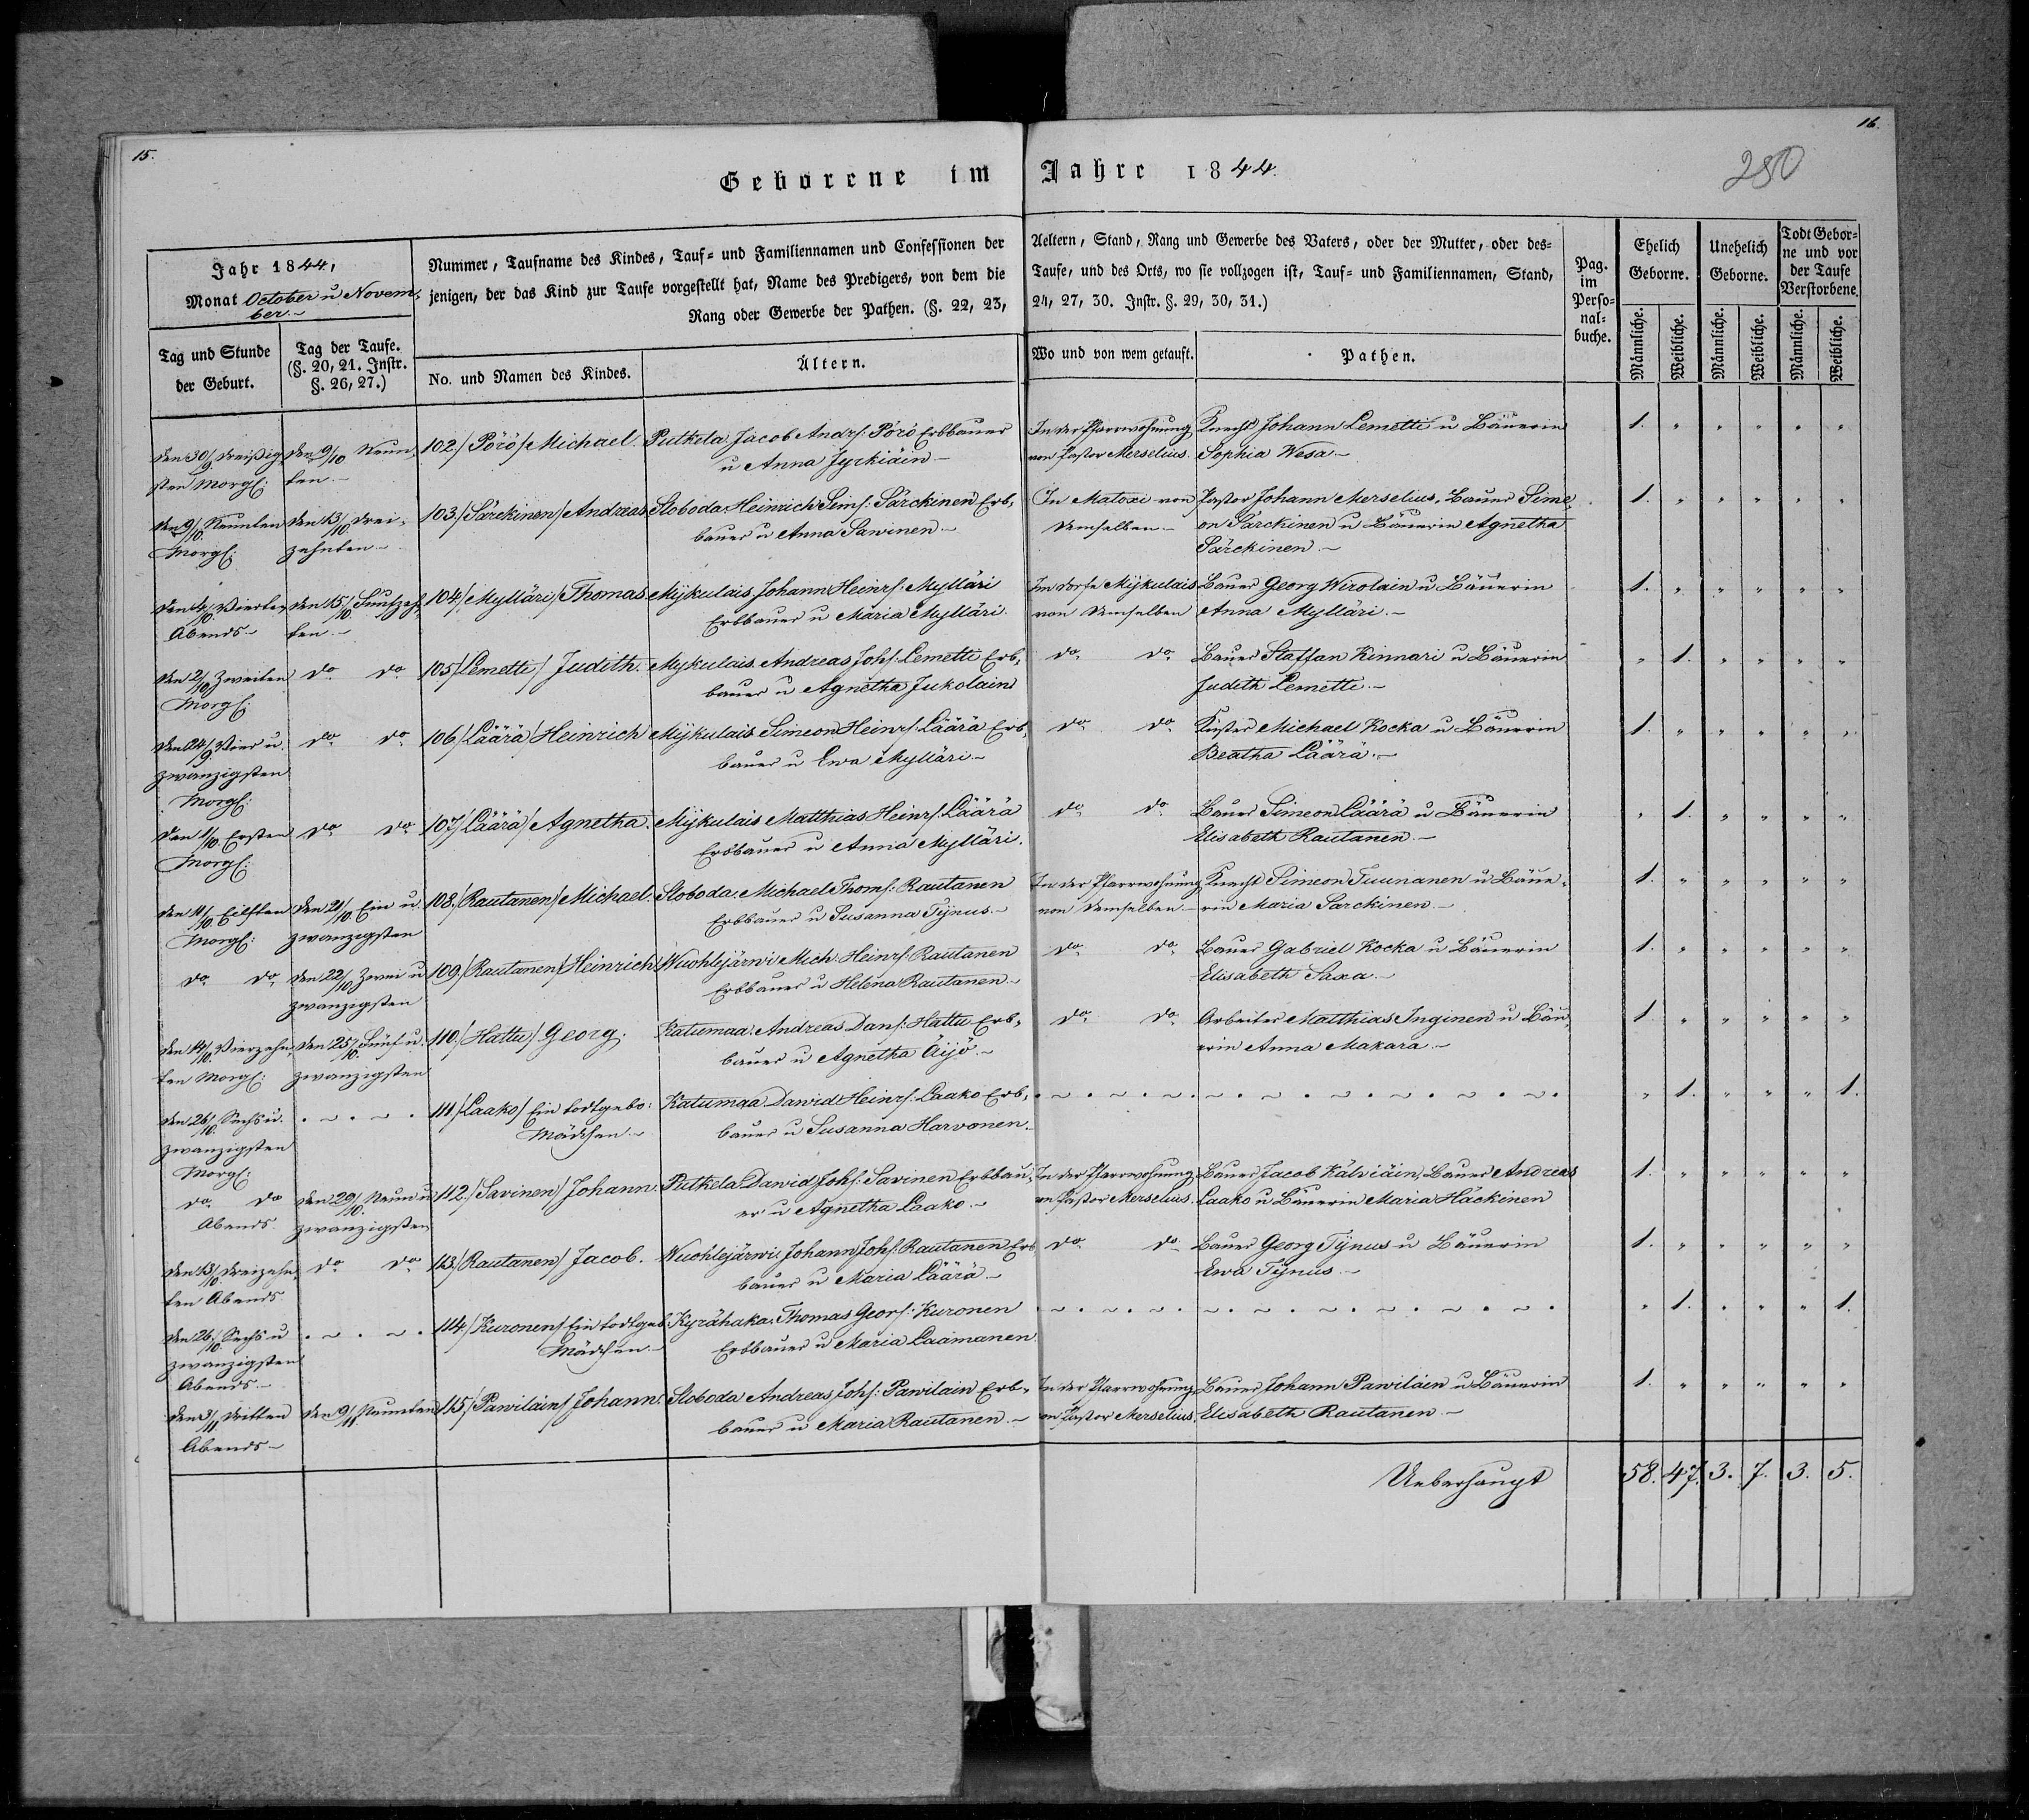 15.
16.
250
Geborene im Jahre 1844.
Jahr 1844,
Monat October u Novem,
ber.~
Nummer, Taufname des Kindes, Tauf- und Familiennamen und Confessionen der
jenigen, der das Kind zur Taufe vorgestellt hat, Name des Predigers, von dem die
Rang oder Gewerbe der Pathen. (§. 22, 23,
Aeltern, Stand, Rang und Gewerbe des Vaters, oder der Mutter, oder des=
Taufe, und des Orts, wo sie vollzogen ist, Tauf= und Familiennamen, Stand,
24, 27, 30. Instr. §. 29, 30, 31.)
Pag.
im
Perso=
nal=
buche.
Ehelich
Geborne.
Unehelich
Geborne.
Todt Gebor=
ne und vor
der Taufe
Verstorbene.
Tag und Stunde
der Geburt.
Tag der Taufe.
(§. 20, 21. Instr.
§. 26, 27.)
No. und Namen des Kindes.
Ältern.
Wo und von wem getauft.
Pathen.
Männliche.
Weibliche.
Männliche.
Weibliche.
Männliche.
Weibliche.
Den 30/9 Dreißig,
sten Morgs:
Den 9/10 Neun,
ten.~
102./ Pörö/ Michael.
Putkela Jacob Andrs: Pörö Erbbauer
u Anna Jyrkiäin~
In der Pfarrwohnung
von Pastor Merselius.
Knecht Johann Lemetti u Bäuerin
Sophia Wesa.~
1. " " " " "
Den 9/10 Neunten
Morgs:
Den 13/10 Drei,
zehnten~
103./ Särckinen/ Andreas
Sloboda Heinrich Sims: Särckinen Erb,
bauer u Anna Sawinen~
In Matoxi von
Demselben~
Pastor Johann Merselius, Bauer Sime,
on Särckinen u Bäuerin Agnetha
Särckinen.~
1. " " " " "
Den 4/10 Vierten
Abends~
Den 15/10 Funfzehn,
ten.~
104/ Mylläri/ Thomas
Mijkulais Johann Heinrs: Mylläri
Erbbauer u Maria Mylläri.
Im Dorfe Mijkulais
von Demselben
Bauer Georg Wirolain u Bäuerin
Anna Mylläri.~
1. " " " " "
Den 2/10 Zweiten
Morgs:
do do
105/ Lemetti/ Judith.
Mijkulais Andreas Johs: Lemetti Erb,
bauer u Agnetha Jukolain
do do
Bauer Staffan Kinnari u Bäuerin
Judith Lemetti.~
" 1. " " " "
Den 24/9 Vier u
zwanzigsten
Morgs:
do do
106/ Läärä/ Heinrich
Mijkulais Simeon Heinrs: Läärä Erb,
bauer u Ewa Mylläri~
do do
Küster Michael Kocka u Bäuerin
Beatha Läärä.~
1. " " " " "
Den 1/10 Ersten
Morgs:
do do
107/ Läärä/ Agnetha.
Mijkulais Matthias Heinrs: Läärä
Erbbauer u Anna Mylläri.
do do
Bauer Simeon Läärä u Bäuerin
Elisabeth Rautanen~
" 1. " " " "
Den 11/10 Eilften
Morgs:
Den 21/10 Ein u
zwanzigsten
108./ Rautanen/ Michael.
Sloboda Michael Thoms: Rautanen
Erbbauer u Susanna Tijnus.~
In der Pfarrwohnung
von Demselben~
Knecht Simeon Tuunanen u Bäue,
rin Maria Sarckinen~
1. " " " " "
do do
Den 22/10 Zwei u
zwanzigsten
109./ Rautanen/ Heinrich
Wuohlejärwi Mich: Heinrs: Rautanen
Erbbauer u Helena Rautanen~
do do
Bauer Gabriel Kocka u Bäuerin
Elisabeth Saxa.~
1. " " " " "
Den 14/10 Vierzehn,
ten Morgs:
Den 25/10 Fünf u
zwanzigsten
110./ Hattu/ Georg.
Katumaa Andreas Dans: Hattu Erb,
bauer u Agnetha Äijö.~
do do
Arbeiter Matthias Inginen u Bäu,
erin Anna Makara~
1. " " " " "
Den 26/10 Sechs u
zwanzigsten
Morgs:
111/ Laako/ Ein todtgebo:
Mädchen.~
Katumaa Dawid Heinrs: Laako Erb,
bauer u Susanna Harvonen.
" 1. " " " 1.
do do
Abends
Den 29/10 Neun u
zwanzigsten
112./ Savinen/ Johann.
Putkela Dawid Johs: Savinen Erbbau,
er u Agnetha Laako.~
In der Pfarrwohnung
von Pastor Merselius.
Bauer Jacob Kälviäin, Bauer Andreas
Laako u Bäuerin Maria Häckinen
1. " " " " "
Den 13/10 Dreizehn,
ten Abends
do do
113/ Rautanen/ Jacob.
Wuohlejärwi Johann Johs: Rautanen Erb,
bauer u Maria Läärä~
do do
Bauer Georg Tijnus u Bäuerin
Ewa Tijnus.~
1. " " " " "
Den 26/10 Sechs u
zwanzigsten
Abends.~
114/ Kuronen/ Ein todtgeb:
Mädchen.~
Kyrähaka Thomas Geors: Kuronen
Erbbauer u Maria Laamanen.
" 1. " " " 1.
Den 3/11 Dritten
Abends~
Den 9/11 Neunten
115/ Pawilain/ Johann.
Sloboda Andreas Johs: Pawilain Erb,
bauer u Maria Rautanen.~
In der Pfarrwohnung
von Pastor Merselius.
Bauer Johann Pawilain u Bäuerin
Elisabeth Rautanen~
1. " " " " "
Ueberhaupt 58. 47. 3. 7. 3. 5.